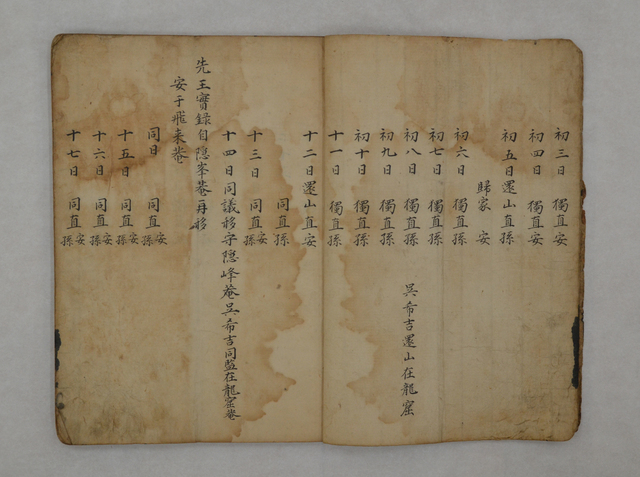 初三日 獨直安
初四日 獨直安
初五日還山直孫
歸家 安
初六日 獨直孫
初七日 獨直孫
初八日 獨直孫 吳希吉還山在龍窟
初九日 獨直孫
初十日 獨直孫
十一日 獨直孫
十二日還山直安
同直孫
十三日 同直安孫
十四日同議移守隱峰菴吳希吉同監在龍窟菴
先王實錄自隱峯菴再移
安于飛来菴
同日 同直安孫
十五日 同直安孫
十六日 同直安孫
十七日 同直安孫